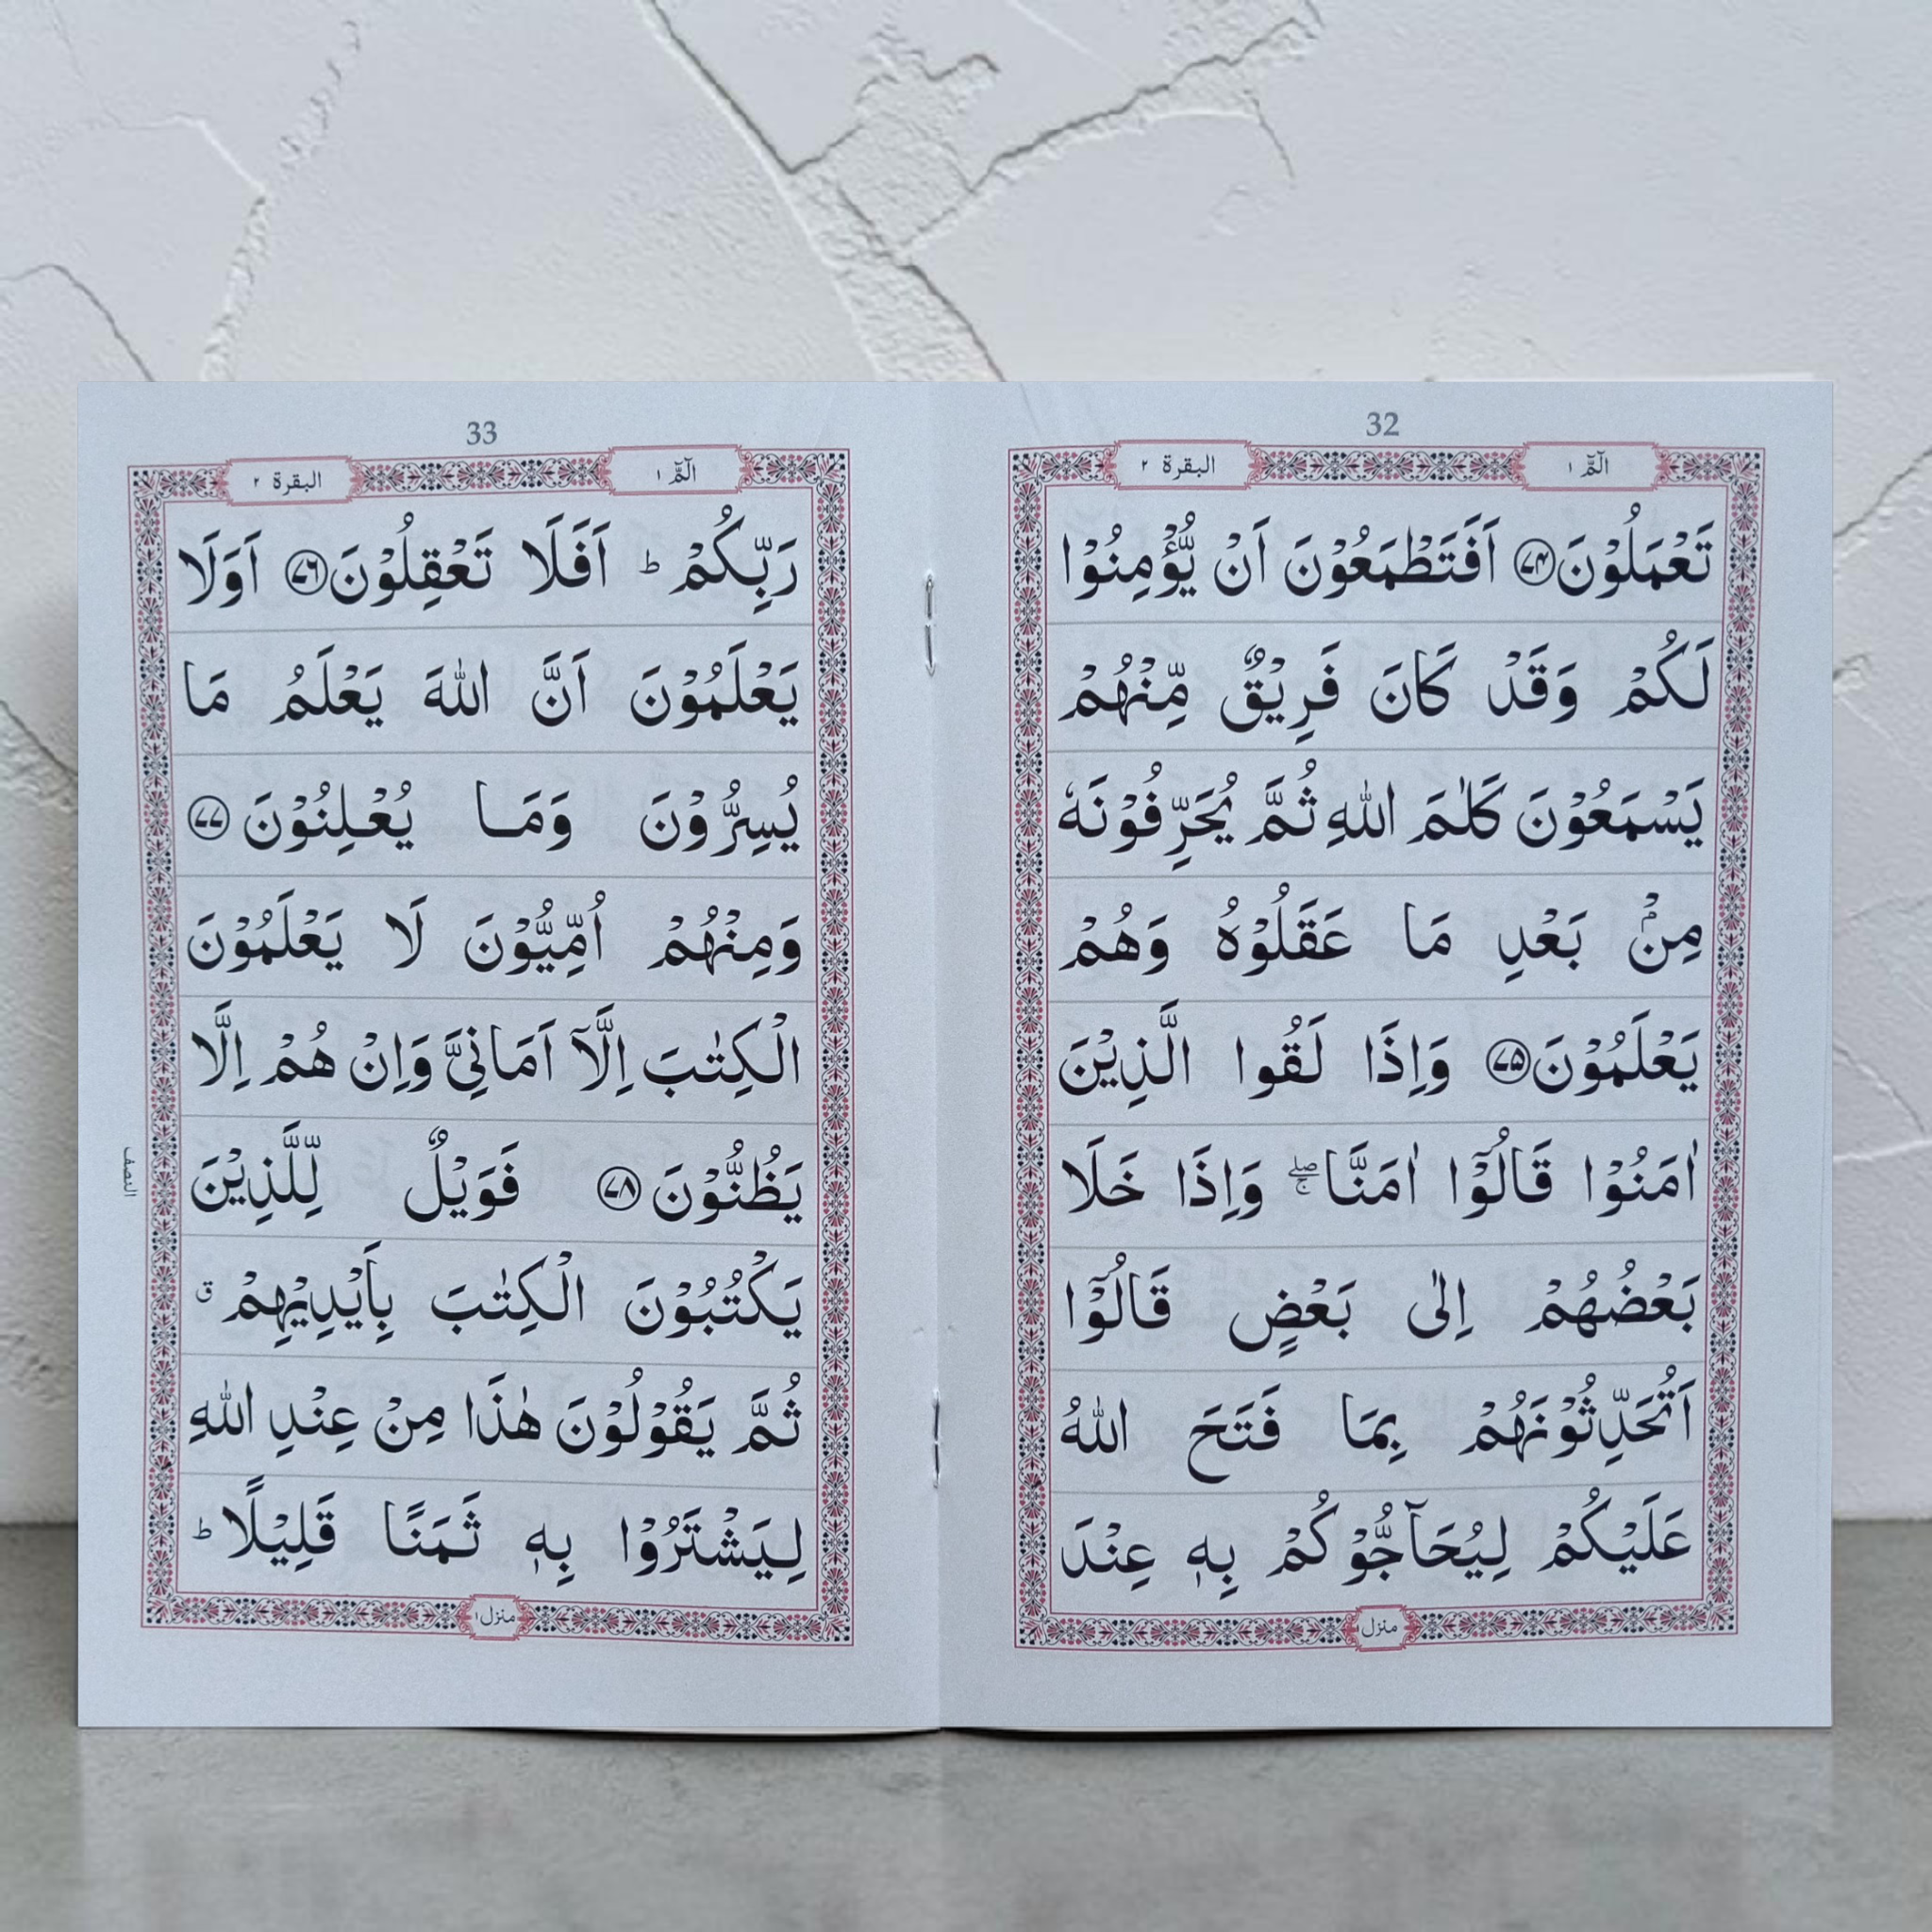 32
الٓمّٓ ١ البقرة ٢
تَعْمَلُوْنَ ﴿۷۴﴾ اَفَتَطْمَعُوْنَ اَنْ يُّؤْمِنُوْا
لَكُمْ وَقَدْ كَانَ فَرِيْقٌ مِّنْهُمْ
يَسْمَعُوْنَ كَلٰمَ اللّٰهِ ثُمَّ يُحَرِّفُوْنَهٗ
مِنْۢ بَعْدِ مَا عَقَلُوْهُ وَهُمْ
يَعْلَمُوْنَ ﴿۷۵﴾ وَاِذَا لَقُوا الَّذِيْنَ
اٰمَنُوْا قَالُوْٓا اٰمَنَّا ۖۚ وَاِذَا خَلَا
بَعْضُهُمْ اِلٰى بَعْضٍ قَالُوْٓا
اَتُحَدِّثُوْنَهُمْ بِمَا فَتَحَ اللّٰهُ
عَلَيْكُمْ لِيُحَآجُّوْكُمْ بِهٖ عِنْدَ
منزل ١
33
الٓمّٓ ١ البقرة ٢
رَبِّكُمْ ؕ اَفَلَا تَعْقِلُوْنَ ﴿۷۶﴾ اَوَلَا
يَعْلَمُوْنَ اَنَّ اللّٰهَ يَعْلَمُ مَا
يُسِرُّوْنَ وَمَا يُعْلِنُوْنَ ﴿۷۷﴾
وَمِنْهُمْ اُمِّيُّوْنَ لَا يَعْلَمُوْنَ
الْكِتٰبَ اِلَّآ اَمَانِىَّ وَاِنْ هُمْ اِلَّا
يَظُنُّوْنَ ﴿۷۸﴾ فَوَيْلٌ لِّلَّذِيْنَ
يَكْتُبُوْنَ الْكِتٰبَ بِاَيْدِيْهِمْ ق
ثُمَّ يَقُوْلُوْنَ هٰذَا مِنْ عِنْدِ اللّٰهِ
لِيَشْتَرُوْا بِهٖ ثَمَنًا قَلِيْلًا ؕ
النصف
منزل ١